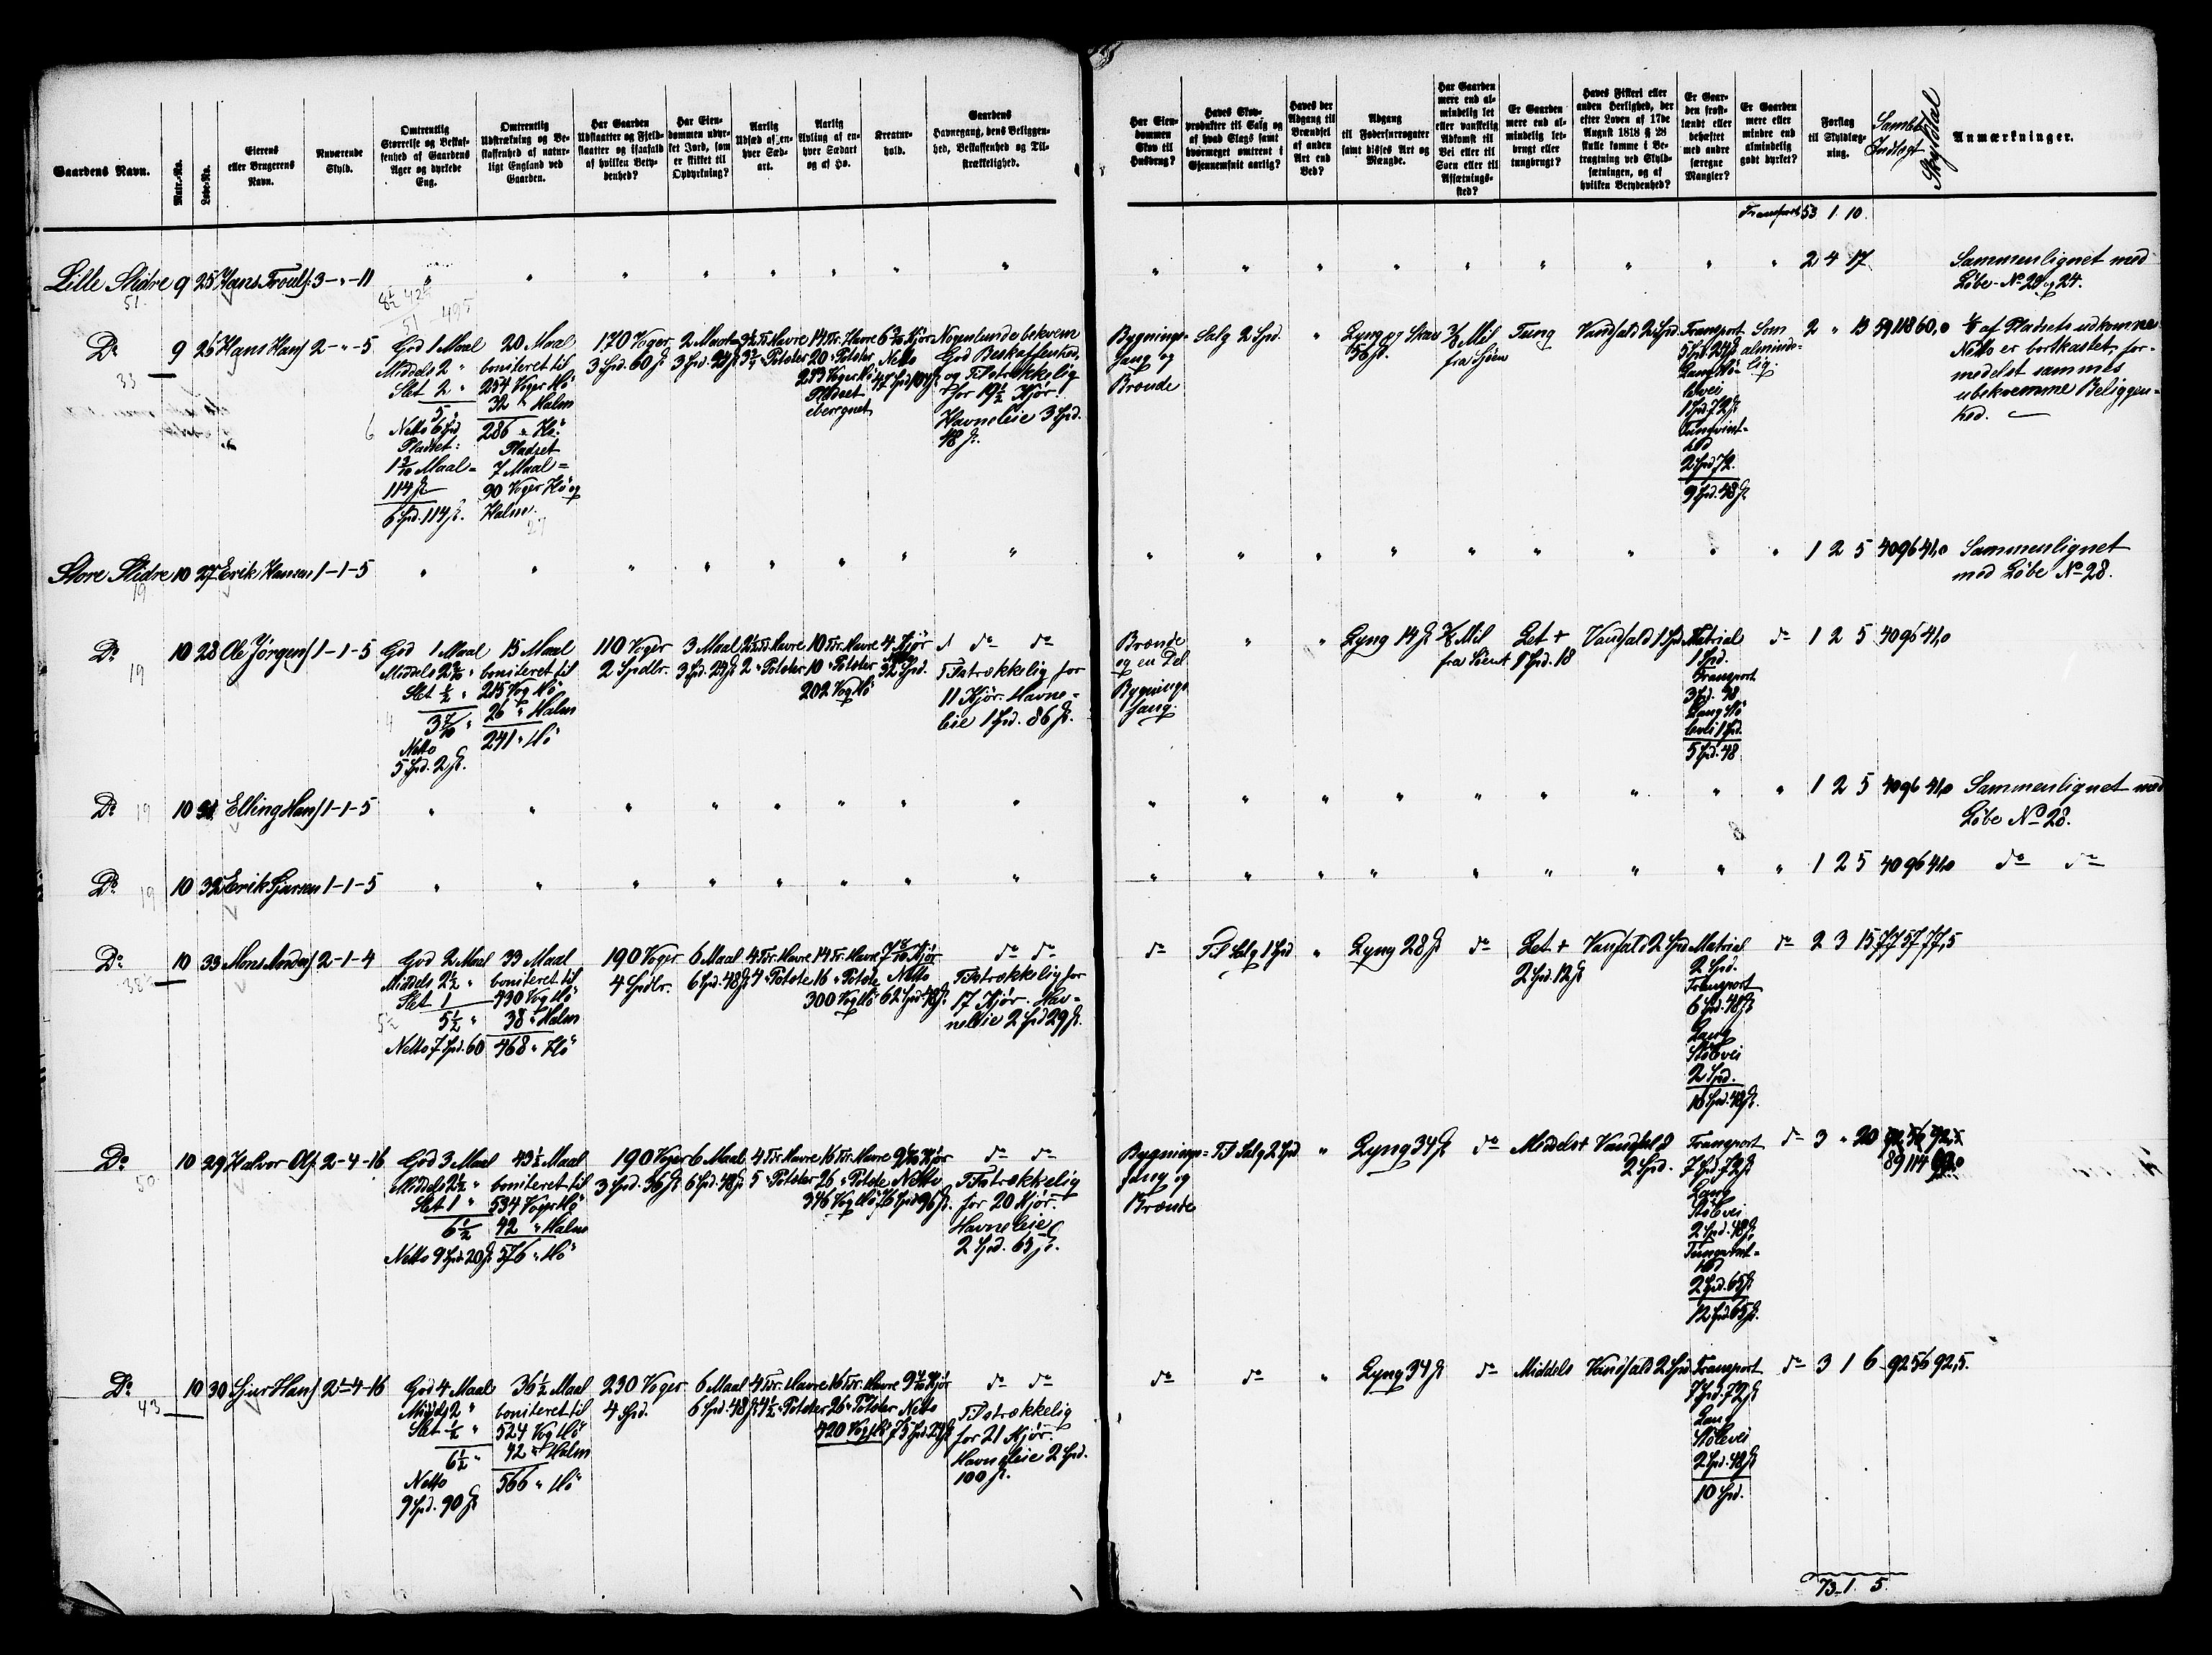 Gaardens Navn.
Matr.-No.
Løbe-No.
Eierens
eller Brugerens
Navn.
Nuværende
Skyld.
Omtrentlig
Størrelse og Beskaf-
fenhed af Gaardens
Ager og dyrkede
Eng.
Omtrentlig
Udstrækning og Be-
skaffenhed af natur-
ligt England ved
Gaarden.
Har Gaarden
Udslaatter og Fjeld-
slaatter og isaafald
af hvilken Bety-
denhed?
Har Eien-
dommen udyr-
ket Jord, som
er skikket til
Opdyrkning?
Aarlig
Udsæd af en-
hver Sæd-
art.
Aarlig
Avling af en-
hver Sædart
og af Hø.
Kreatur-
hold.
Gaardens
Havnegang, dens Beliggen-
hed, Beskaffenhed og Til-
strækkelighed.
Har Eien-
dommen
Skov til
Husbrug?
Haves Skov-
produkter til Salg og
af hvad Slags samt
hvormeget omtrent i
Gjennemsnit aarlig?
Haves der
Adgang til
Brændsel
af anden
Art end
Ved?
Adgang
til Fodersurrogater
samt disses Art og
Mængde.
Har Gaarden
mere end al-
mindelig let
eller vanskelig
Adkomst til
Vei eller til
Søen eller til
Afsætnings-
sted?
Er Gaarden
mere end al-
mindelig let-
brugt eller
tungbrugt?
Haves Fiskeri eller
anden Herlighed, der
efter Loven af 17de
August 1818 § 28
skulle komme i Be-
tragtning ved Skyld-
sætningen, og af
hvilken Betydenhed?
Er Gaar-
den frost-
lændt eller
beheftet
med andre
særegne
Mangler?
Er Gaarden
mere eller
mindre end
almindelig
godt dyrket?
Forslag
til Skyldlæg-
ning.
Skyldtal
Anmærkninger.
Transport 53 1 10.
Lille Slidre 9 25 Hans Trouls. 3-"-11
2 4 17
Sammenlignet med
Løbe-No 20 og 24.
51
Do 9 26 Hans Hans. 2-"-5
God 1 Maal
Middels 2 "
Slet 2 "
5 "
Netto 6 Spd
Pladset:
1 3/10 Maal =
114 ß
6 Spd. 114 ß.
20 Maal
boniteret til
254 Voger Hö
32 " Halm
286 " Hö
Pladset
7 Maal =
90 Voger Hö og
Halm.
170 Voger
3 Spd. 60 ß
14 Tr. Havre
20 " Poteter
Pladset
iberegnet
Netto
Nogenlunde bekvem
God Beskaffenhed,
og Tilstrækkelig
for 19½ Kjør
Havneleie 3 Spd.
48 ß.
Bygnings-
fang og
Brænde
Salg 2 Spd.
Lyng og Skav
56 ß.
3/8 Mil
fra Sjøen
Tung
Vandfald 2 Spd.
Transport
5 Spd. 24 ß
Lang Stö-
levei
1 Spd. 72 ß
Tungvint-
hed
2 Spd 72.
9 Spd. 48 ß.
Som
almind-
lig
2 " 13 59 118 60,0
⅙ af Pladsets udkomne
Netto er bortkastet, for-
medelst sammes
ubekvemme Beliggen-
hed.
33
Store Slidre 10 27 Erik Hansen 1-1-5
1 2 5 40 96 41,0
Sammenlignet
med Løbe No 28.
19
Do 10 28 Ole Jörgens. 1-1-5
God 1 Maal
Middels 2 2/10 "
Slet ½ "
3 7/10 "
Netto
5 Spd. 2 ß.
15 Maal
boniteret til
215 Vog Hö
26 " Halm
241 " Hö
110 Voger
2 Spdlr.
3 Maal
3 Spd. 24 ß
2½ Tr. Havre
2 " Poteter
10 Tr. Havre
10 " Poteter
202 Vog Hö
4 Kjør
32 Spd.
do do
Tilstrækkelig for
11 Kjør. Havne-
leie 1 Spd. 86 ß.
Brænde
og en Del
Bygnings-
fang.
Lyng 14 ß
3/8 Mil
fra Söen
Let +
1 Spd. 18
Vandfald 1 Spd.
Matrial
1 Spd.
Transport
3 Spd. 48
Lang Stö
levei 1 Spd.
5 Spd. 48
do
1 2 5 40 96 41,0
19
Do 19 10 31 Elling Hans. 1-1-5
1 2 5 40 96 41,0
Sammenlignet med
Løbe No 28.
Do 19 10 32 Erik Sjursen 1-1-5
1 2 5 40 96 41,0
do do
Do 10 33 Mons Anders. 2-1-4
God 2 Maal
Middels 2½ "
Slet 1
5½ "
Netto 7 Spd. 60
33 Maal
boniteret til
430 Vog Hö
38 " Halm
468 " Hö
190 Voger
4 Spdlr.
6 Maal
6 Spd. 48 ß
4 Tr. Havre
4 " Potete
14 Tr. Havre
16 " Potete
300 Vog Hö
7 8/10 Kjør
Netto
62 Spd 48 ß.
do do
Tilstrækkelig for
17 Kjør. Hav-
neleie 2 Spd 29 ß.
do
Til Salg 1 Spd
Lyng 28 ß
do
Let +
2 Spd. 12 ß
Vandfald 2 Spd
Matrial
2 Spd.
Transport
6 Spd. 48 ß
Lang
Stölevei
2 Spd.
10 Spd. 48 ß.
do
2 3 15 77 57 77,5
Do 10 29 Halvor Ols. 2-4-16
God 3 Maal
Middels 2½ "
Slet 1 "
6½
Netto 9 Spd. 20 ß
43½ Maal
boniteret til
534 Voger Hö
42 " Halm
576 " Hö
190 Voger
3 Spd. 36 ß
6 Maal
6 Spd. 48 ß
4 Tr. Havre
5 " Poteter
16 Tr. Havre
26 " Potete
346 Vog Hö
Netto
76 Spd 96 ß.
do do
Tilstrækkelig
for 20 Kjør.
Havneleie
2 Spd. 65 ß.
Bygnings-
fang og
Brænde
Til Salg 2 Spd
Lyng 34 ß
do
Middels +
Vandfald
2 Spd.
Transport
7 Spd 72 ß
Lang
Stölevei
2 Spd. 48 ß
Tungvint-
hed
2 Spd. 65 ß
12 Spd 65 ß.
do
3 " 20 92 56 92,5
89 114
50
Do 10 30 Sjur Hans. 2-4-16
God 4 Maal
Middels 2 "
Slet ½ "
6½ "
Netto
9 Spd. 90 ß
36½ Maal
boniteret til
524 Vog Hö
42 " Halm
566 " Hö
230 Voger
4 Spd.
6 Maal
6 Spd. 48 ß
4 Tr. Havre
4½ " Poteter
16 Tr. Havre
26 " Poteter
420 Vog Hö
Netto
75 Spd. 24 ß
do do
Tilstrækkelig
for 21 Kjør.
Havneleie 2 Spd.
100 ß.
do
do
Lyng 34 ß
do
Middels
Vandfald 2 Spd
Transport
7 Spd. 72 ß
Lang
Stölevei
2 Spd. 48 ß
10 Spd.
do
3 1 6 92 56 92,5.
43
73 1 5